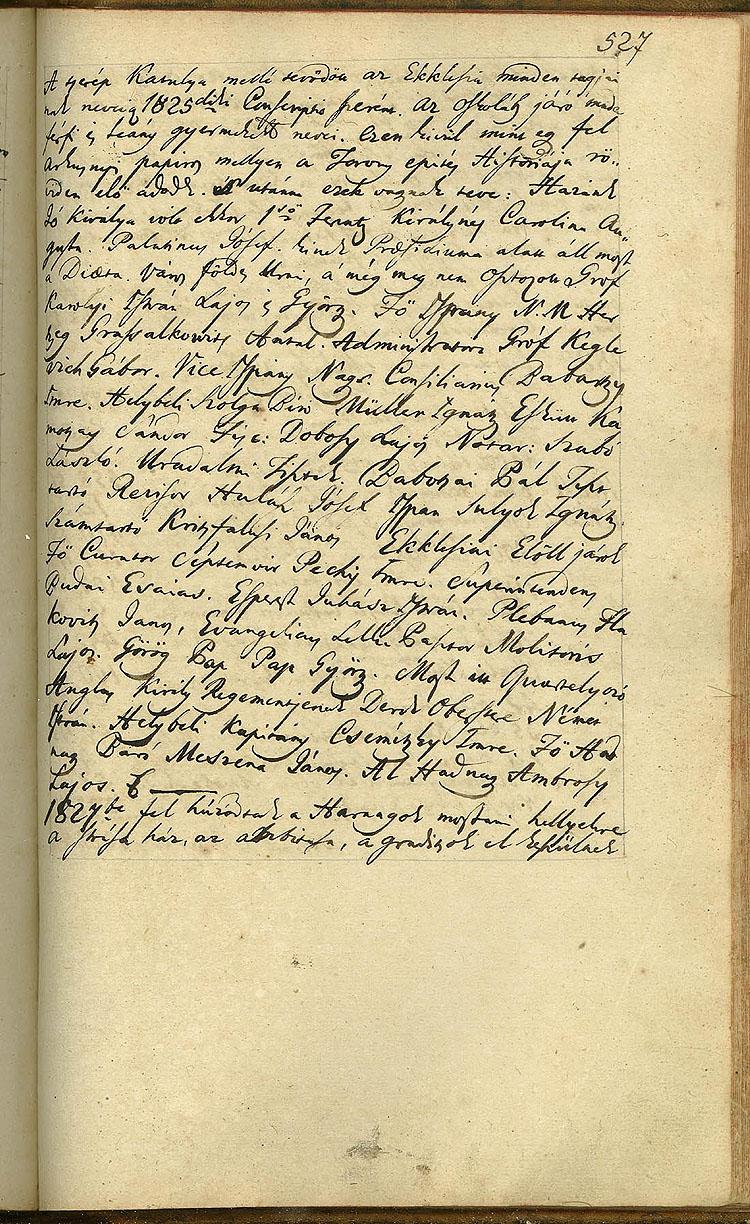 527
A cserép Katulya mellé tevődött az Ekklesia minden tagjai
nak neveiq 1825diki Conscriptio szerént. az oskoláb járó mind
férfi és leány gyermekek nevei. ezen kivül mint eg fel
árkusnyi papiros mellyen a Torony épités Históriája rö-
viden elő adódk. utánna ezek vagynak téve: Hazánk
Jó Királya volt ekkor 1ső Ferentz Királyné Carolina Au-
gusta. Palatinus Jósef. kinek Præsidiuma alatt áll most
a Diæta. Város földes Urai, a még meg nem osztozott Gróf
Karolyi István Lajos és György. Fő Ispány N. M. Her
tzeg Grassalkowits Antal. Administrator Gróf Kegle
vich Gábor. Vice Ispány Nags. Consiliarius Babarczy
Imre. Helybéli Szolga Biró Müller Ignátz Eskütt Ka
Sándor Fisc: Dobosy Lajos Notar: Szabó
László. Uradalmi Tisztek. Pál Tiszt
tartó Revisor Huláh Jósef Ispán Sulyok Ignátz.
Számtartó Kriskfalusi János Ekklésiai Elöll járok
Fő Curator Septemvir Pechy Imre. Superintendens
Budai Esaias. Esperest Juhász István. Plebanus Hla
kovits Janos, Evangelicus Lelki Pásztor Molitoris
Lajos. Görög Pap Pap György. Most itt Quartélyozó
Anglus Király Regementjének Derék Obestere Német
István. Helybéli Kapitány Csemitzky Imre. Fő Had
nag Báró Meszena János. Al Hadnag Ambrosy
Lajos.
1827be fel húzódtak a Harangok mostani hellyekre
a strása ház, az , a graditsok el készültek